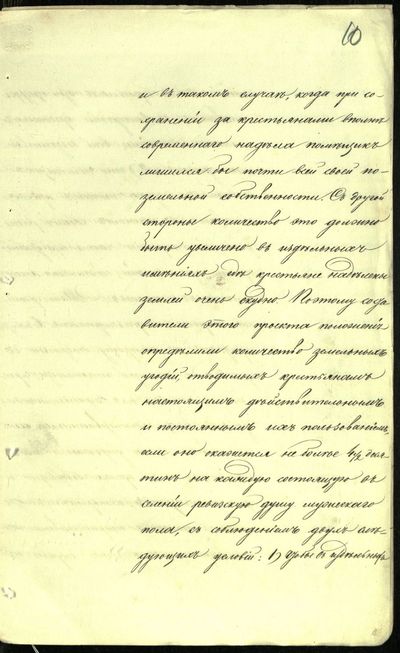 60
и въ такомъ случаѣ, когда при со-
храненіи за крестьянами вполнѣ
современнаго надѣла помѣщикъ
лишился бы почти всей своей по-
земельной собственности. Съ другой
стороны количество это должно
быть увеличено въ издѣльныхъ
имѣніяхъ гдѣ крестьяне надѣлены
землей очень скудно. Поэтому соста
вители этого проекта положенія
опредѣлили количество земельныхъ
угодій, отводимыхъ крестьянамъ
настоящимъ дѣйствительнымъ
и постояннымъ ихъ пользованіемъ,
если оно окажется не болѣе 4½ деся
тинъ на каждую состоящую въ
имѣніи ревизскую душу мужескаго
пола, съ соблюденіемъ двухъ слѣ-
дующихъ условій: 1) чтобы въ